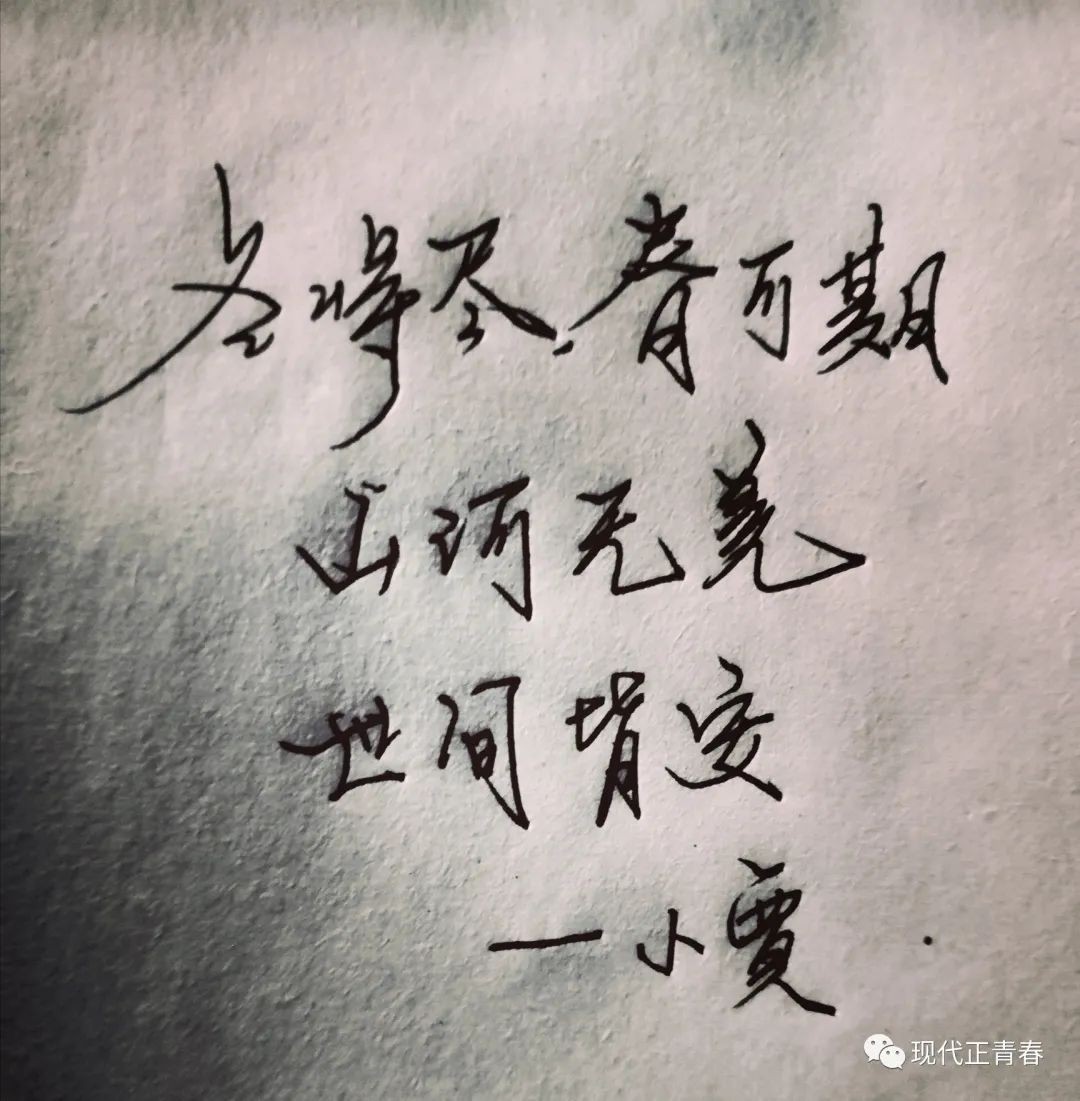 冬将尽，春可期
山河无恙
世间皆安
—小贾
现代正青春